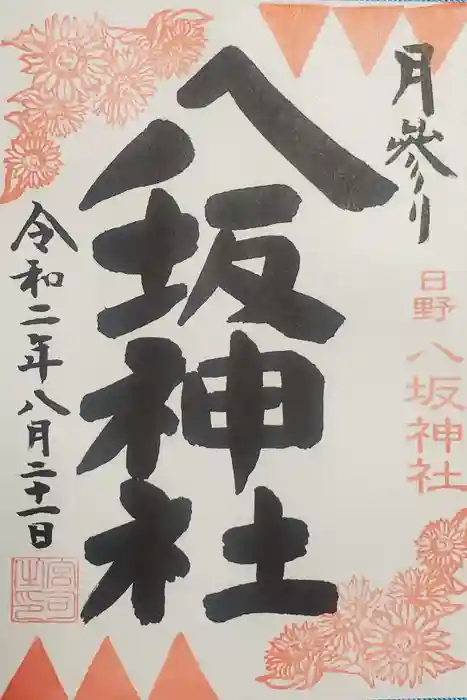 月参り
日野八坂神社
八坂神社
令和二年八月二十一日
宮司之印